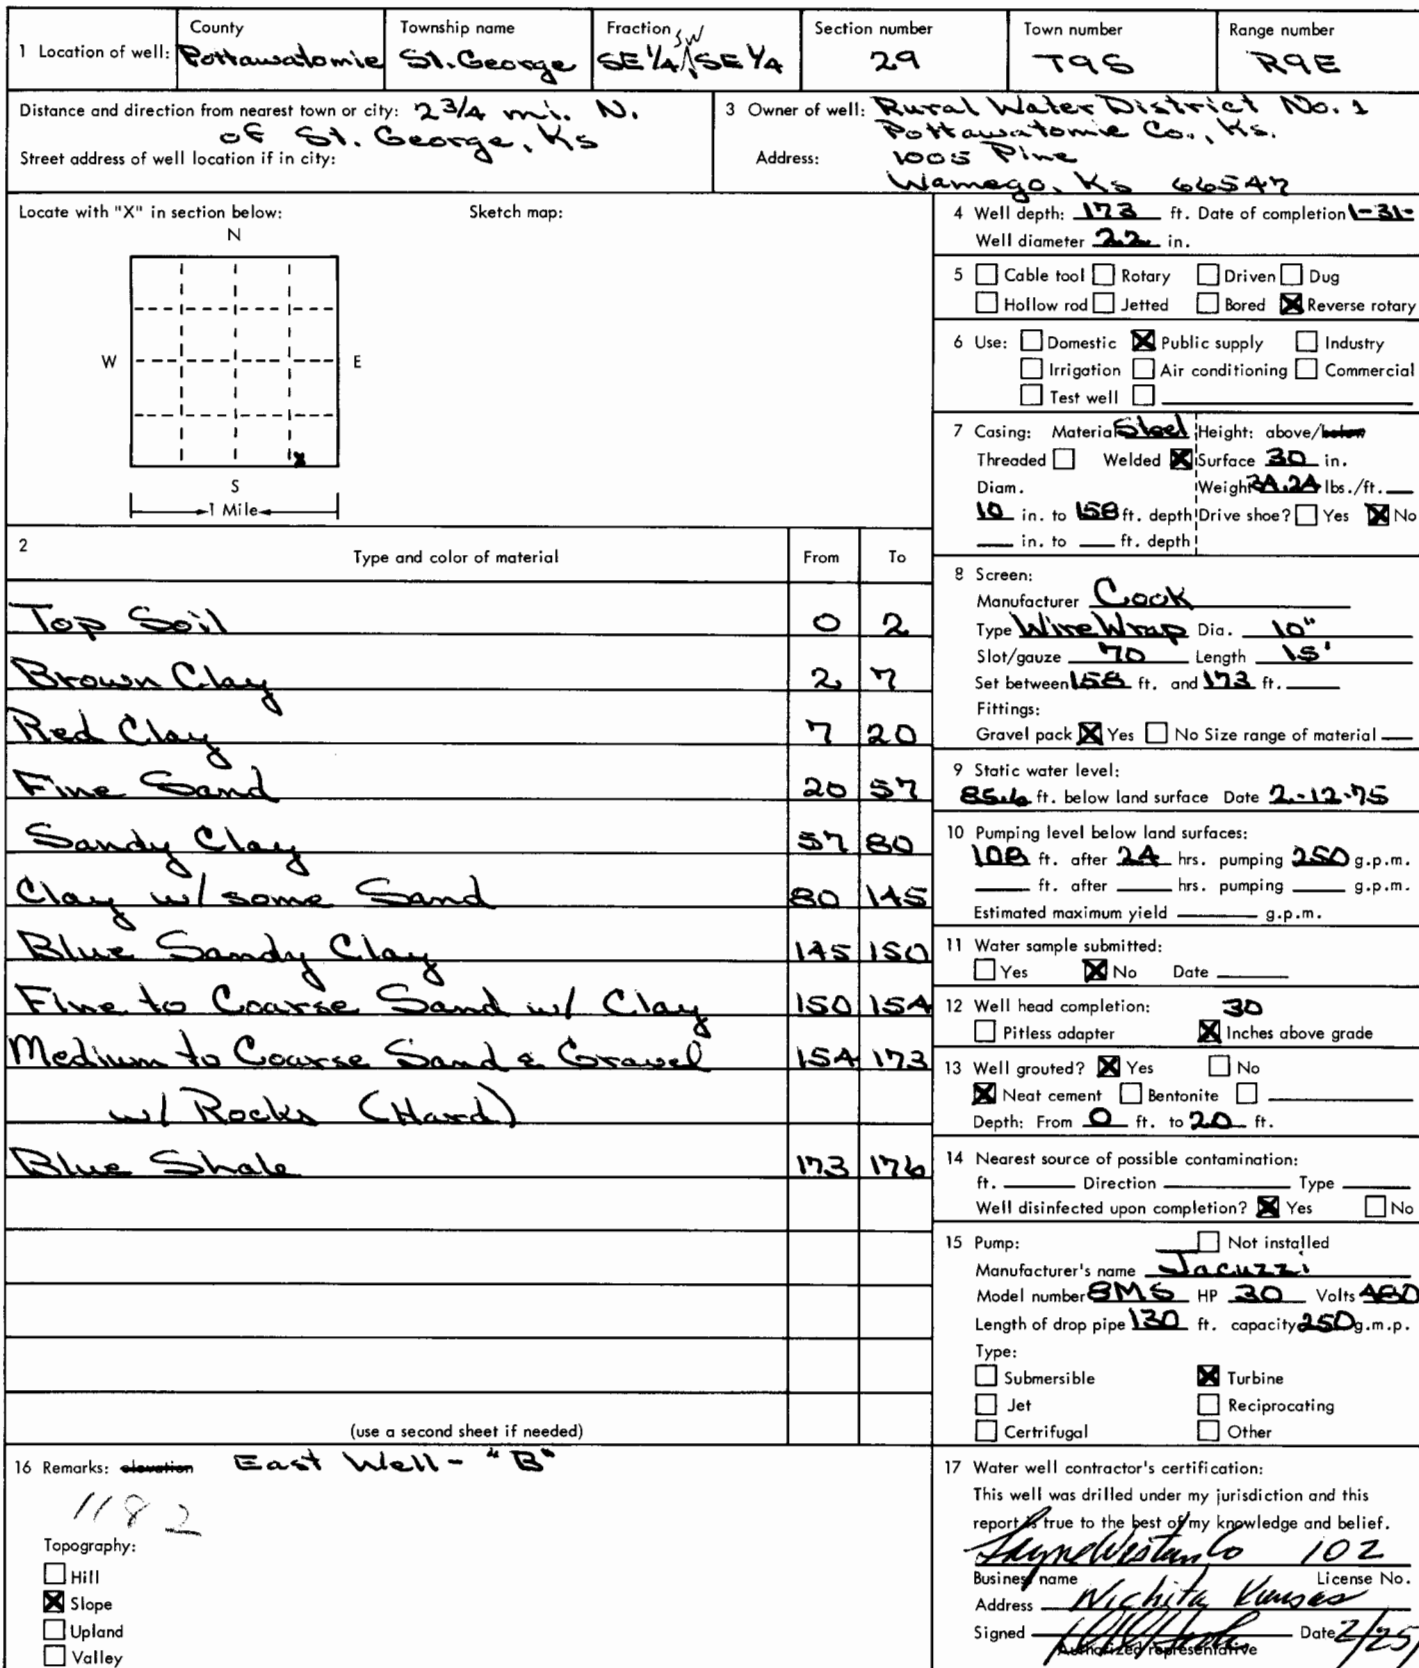 1 Location of well:
County
Pottawatomie
Township name
St. George
Fraction
SW
SE 1/4 SE 1/4
Section number
29
Town number
T9S
Range number
R9E
Distance and direction from nearest town or city: 2 3/4 mi. N.
of St. George, Ks
Street address of well location if in city:
3 Owner of well: Rural Water District No. 1
Pottawatomie Co., Ks.
Address: 1005 Pine
Wamego, Ks 66547
Locate with "X" in section below:
Sketch map:
N
W
E
S
1 Mile
X
2
Type and color of material From To
Top Soil 0 2
Brown Clay 2 7
Red Clay 7 20
Fine Sand 20 57
Sandy Clay 57 80
Clay w/ some Sand 80 145
Blue Sandy Clay 145 150
Fine to Coarse Sand w/ Clay 150 154
Medium to Coarse Sand & Gravel 154 173
w/ Rocks (Hard)
Blue Shale 173 176
(use a second sheet if needed)
4 Well depth: 173 ft. Date of completion 1-31-
Well diameter 22 in.
5 Cable tool Rotary Driven Dug
Hollow rod Jetted Bored X Reverse rotary
6 Use: Domestic X Public supply Industry
Irrigation Air conditioning Commercial
Test well
7 Casing: Material Steel Height: above/below
Threaded Welded X Surface 30 in.
Diam. Weight 34.24 lbs./ft.
10 in. to 158 ft. depth Drive shoe? Yes X No
in. to ft. depth
8 Screen:
Manufacturer Cook
Type Wire Wrap Dia. 10"
Slot/gauze 70 Length 15'
Set between 158 ft. and 173 ft.
Fittings:
Gravel pack X Yes No Size range of material
9 Static water level:
85.6 ft. below land surface Date 2-12-75
10 Pumping level below land surfaces:
108 ft. after 24 hrs. pumping 250 g.p.m.
ft. after hrs. pumping g.p.m.
Estimated maximum yield g.p.m.
11 Water sample submitted:
Yes X No Date
12 Well head completion: 30
Pitless adapter X Inches above grade
13 Well grouted? X Yes No
X Neat cement Bentonite
Depth: From 0 ft. to 20 ft.
14 Nearest source of possible contamination:
ft. Direction Type
Well disinfected upon completion? X Yes No
15 Pump: Not installed
Manufacturer's name Jacuzzi
Model number 8MS HP 30 Volts 480
Length of drop pipe 130 ft. capacity 250 g.m.p.
Type:
Submersible X Turbine
Jet Reciprocating
Certrifugal Other
16 Remarks: elevation East Well - "B"
1182
Topography:
Hill
X Slope
Upland
Valley
17 Water well contractor's certification:
This well was drilled under my jurisdiction and this
report is true to the best of my knowledge and belief.
Layne Western Co 102
Business name License No.
Address Wichita Kansas
Signed Date 2/25/
Authorized representative